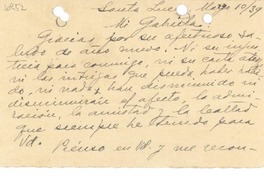 6852
Santa Lucía, Marzo 10/39
Mi Gabriela:
Gracias por su afectuoso sa-
ludo de año nuevo. Ni su
para conmigo, ni su carta
ni las intrigas que pueda haber
do, ni nada, han disminuido ni
disminuirán el afecto, la admi-
ración, la amistad y la lealtad
que siempre he tenido para
Vd. Pienso en Vd. y me recon-